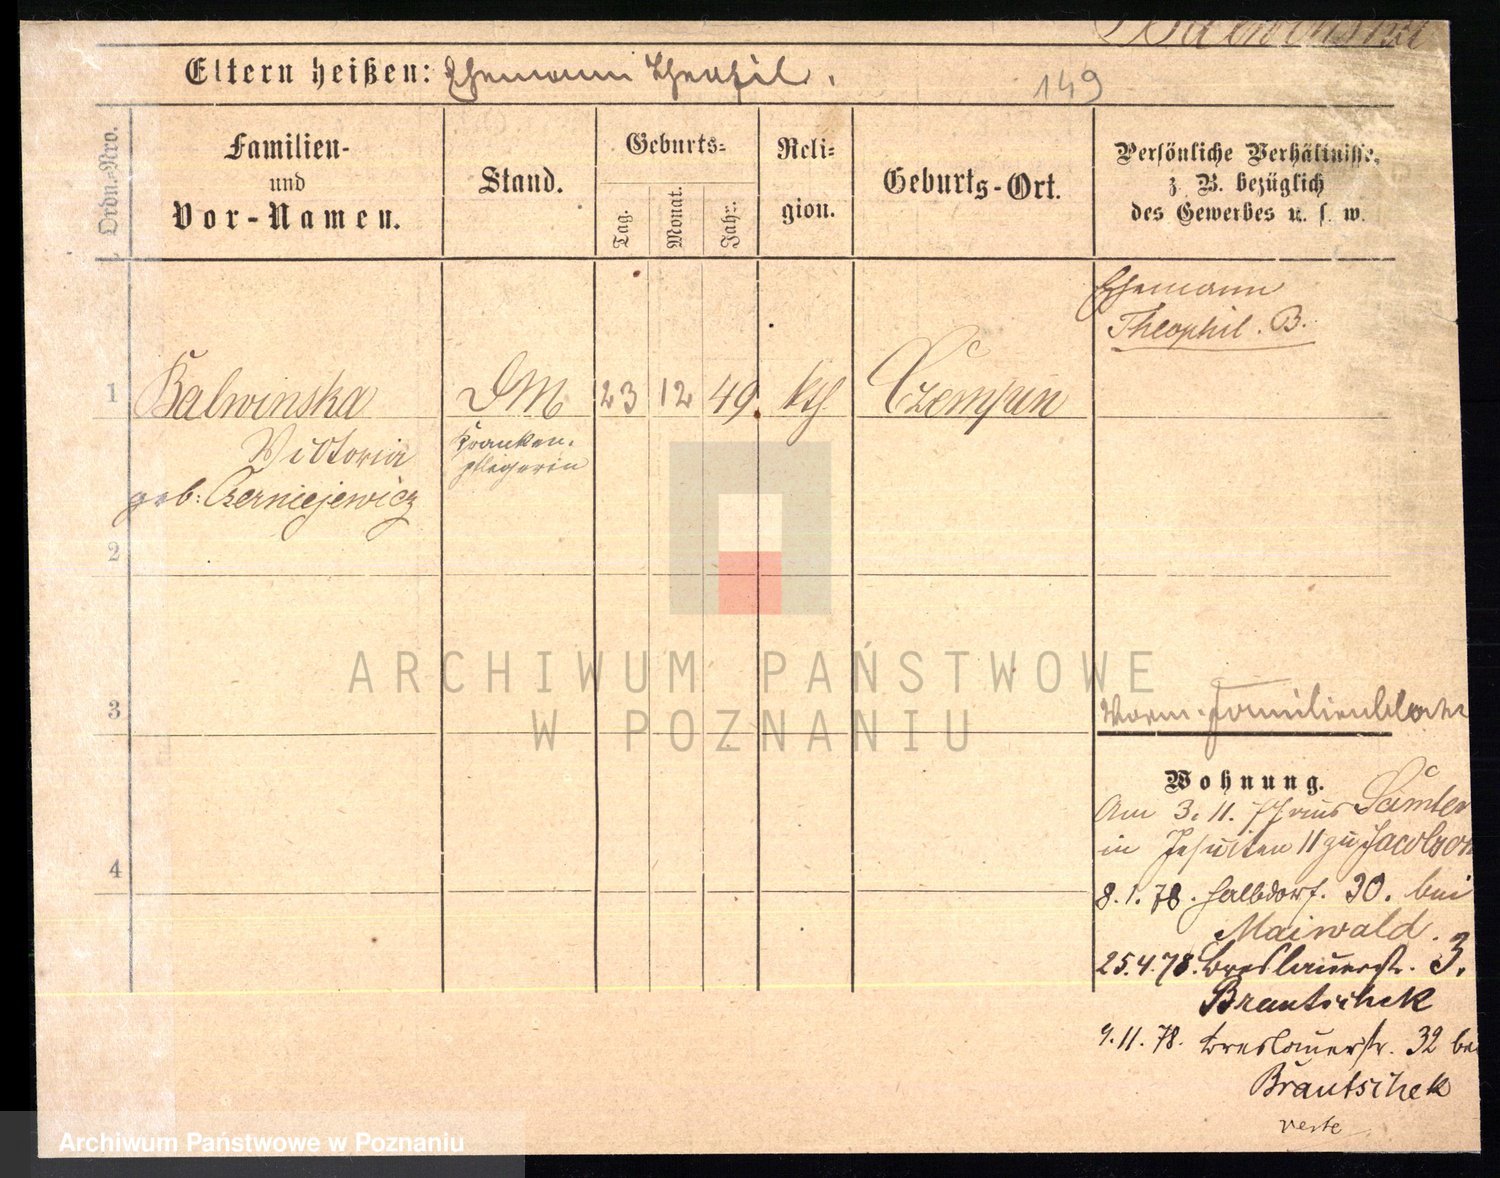 Balwinska
Eltern heißen: Ehemann Theofil.
149
Ordn.-Nro.
Familien-
und
Vor-Namen.
Stand.
Geburts-
Tag.
Monat.
Jahr.
Reli-
gion.
Geburts-Ort.
Persönliche Verhältnisse,
z. B. bezüglich
des Gewerbes u. s. w.
Ehemann
Theophil. B.
1 Balwinska DM 23 12 49 kth Czempin
Viktoria
geb: Czerniejewicz
Kranken-
pflegerin
2
3
4
ARCHIWUM PAŃSTWOWE
W POZNANIU
Wohnung.
Am 3. 11. 77 aus Samter
in Jesuiten 11 zu Jacobson
8. 1. 78. Halbdorf. 30. bei
Maiwald.
25.4.78. Breslauerstr. 3.
Brautschek
9. 11. 78. Breslauerstr. 32 bei
Brautschek
verte
Archiwum Państwowe w Poznaniu